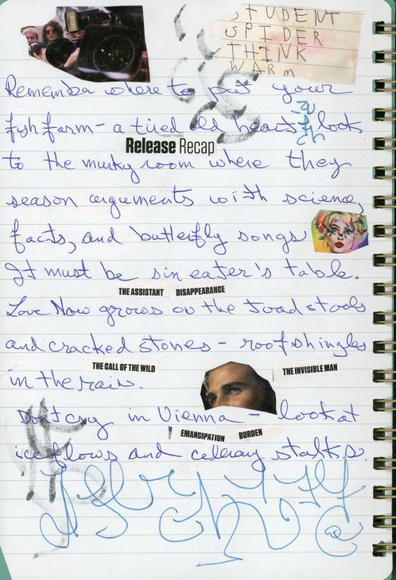 STUDENT
SPIDER
THINK
WARM
Remember where to put your
fish farm - a tired old heart look
Release Recap
to the murky room where they
season arguments with science,
facts, and butterfly songs
It must be sin eater's table.
THE ASSISTANT DISAPPEARANCE
Love Now grows on the toad stools
and cracked stones - roof shingles
THE CALL OF THE WILD THE INVISIBLE MAN
in the rain.
Don't cry in Vienna - look at
EMANCIPATION BURDEN
ice flows and celery stalks.